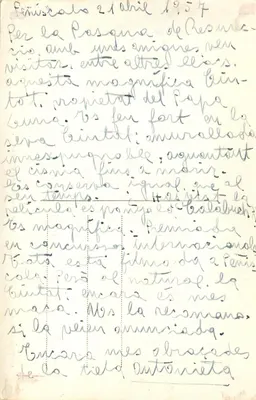 Peñiscola 21 abril 1957
Per la Pasqua de Resurrec
ció, amb unes amigues, vem
visitar, entre altres llocs,
aquesta magnifica Ciu-
tat, propietat del Papa
Luna. Es feu fort en la
seva Ciutat amurallada
inespugnable, aguantant
el cisma fins a morir.
Es conserva igual que al
seu temps. Has vist la
película "es ponja es Calabuch"
Es magnífica. Premiada
en concursos internacionals
Tota està filmada a Peñis
cola; però al natural, la
Ciutat encara es mes
maca. Us la recomano
si la veieu anunciada.
Encara mes abraçades
de la tieta Antonieta